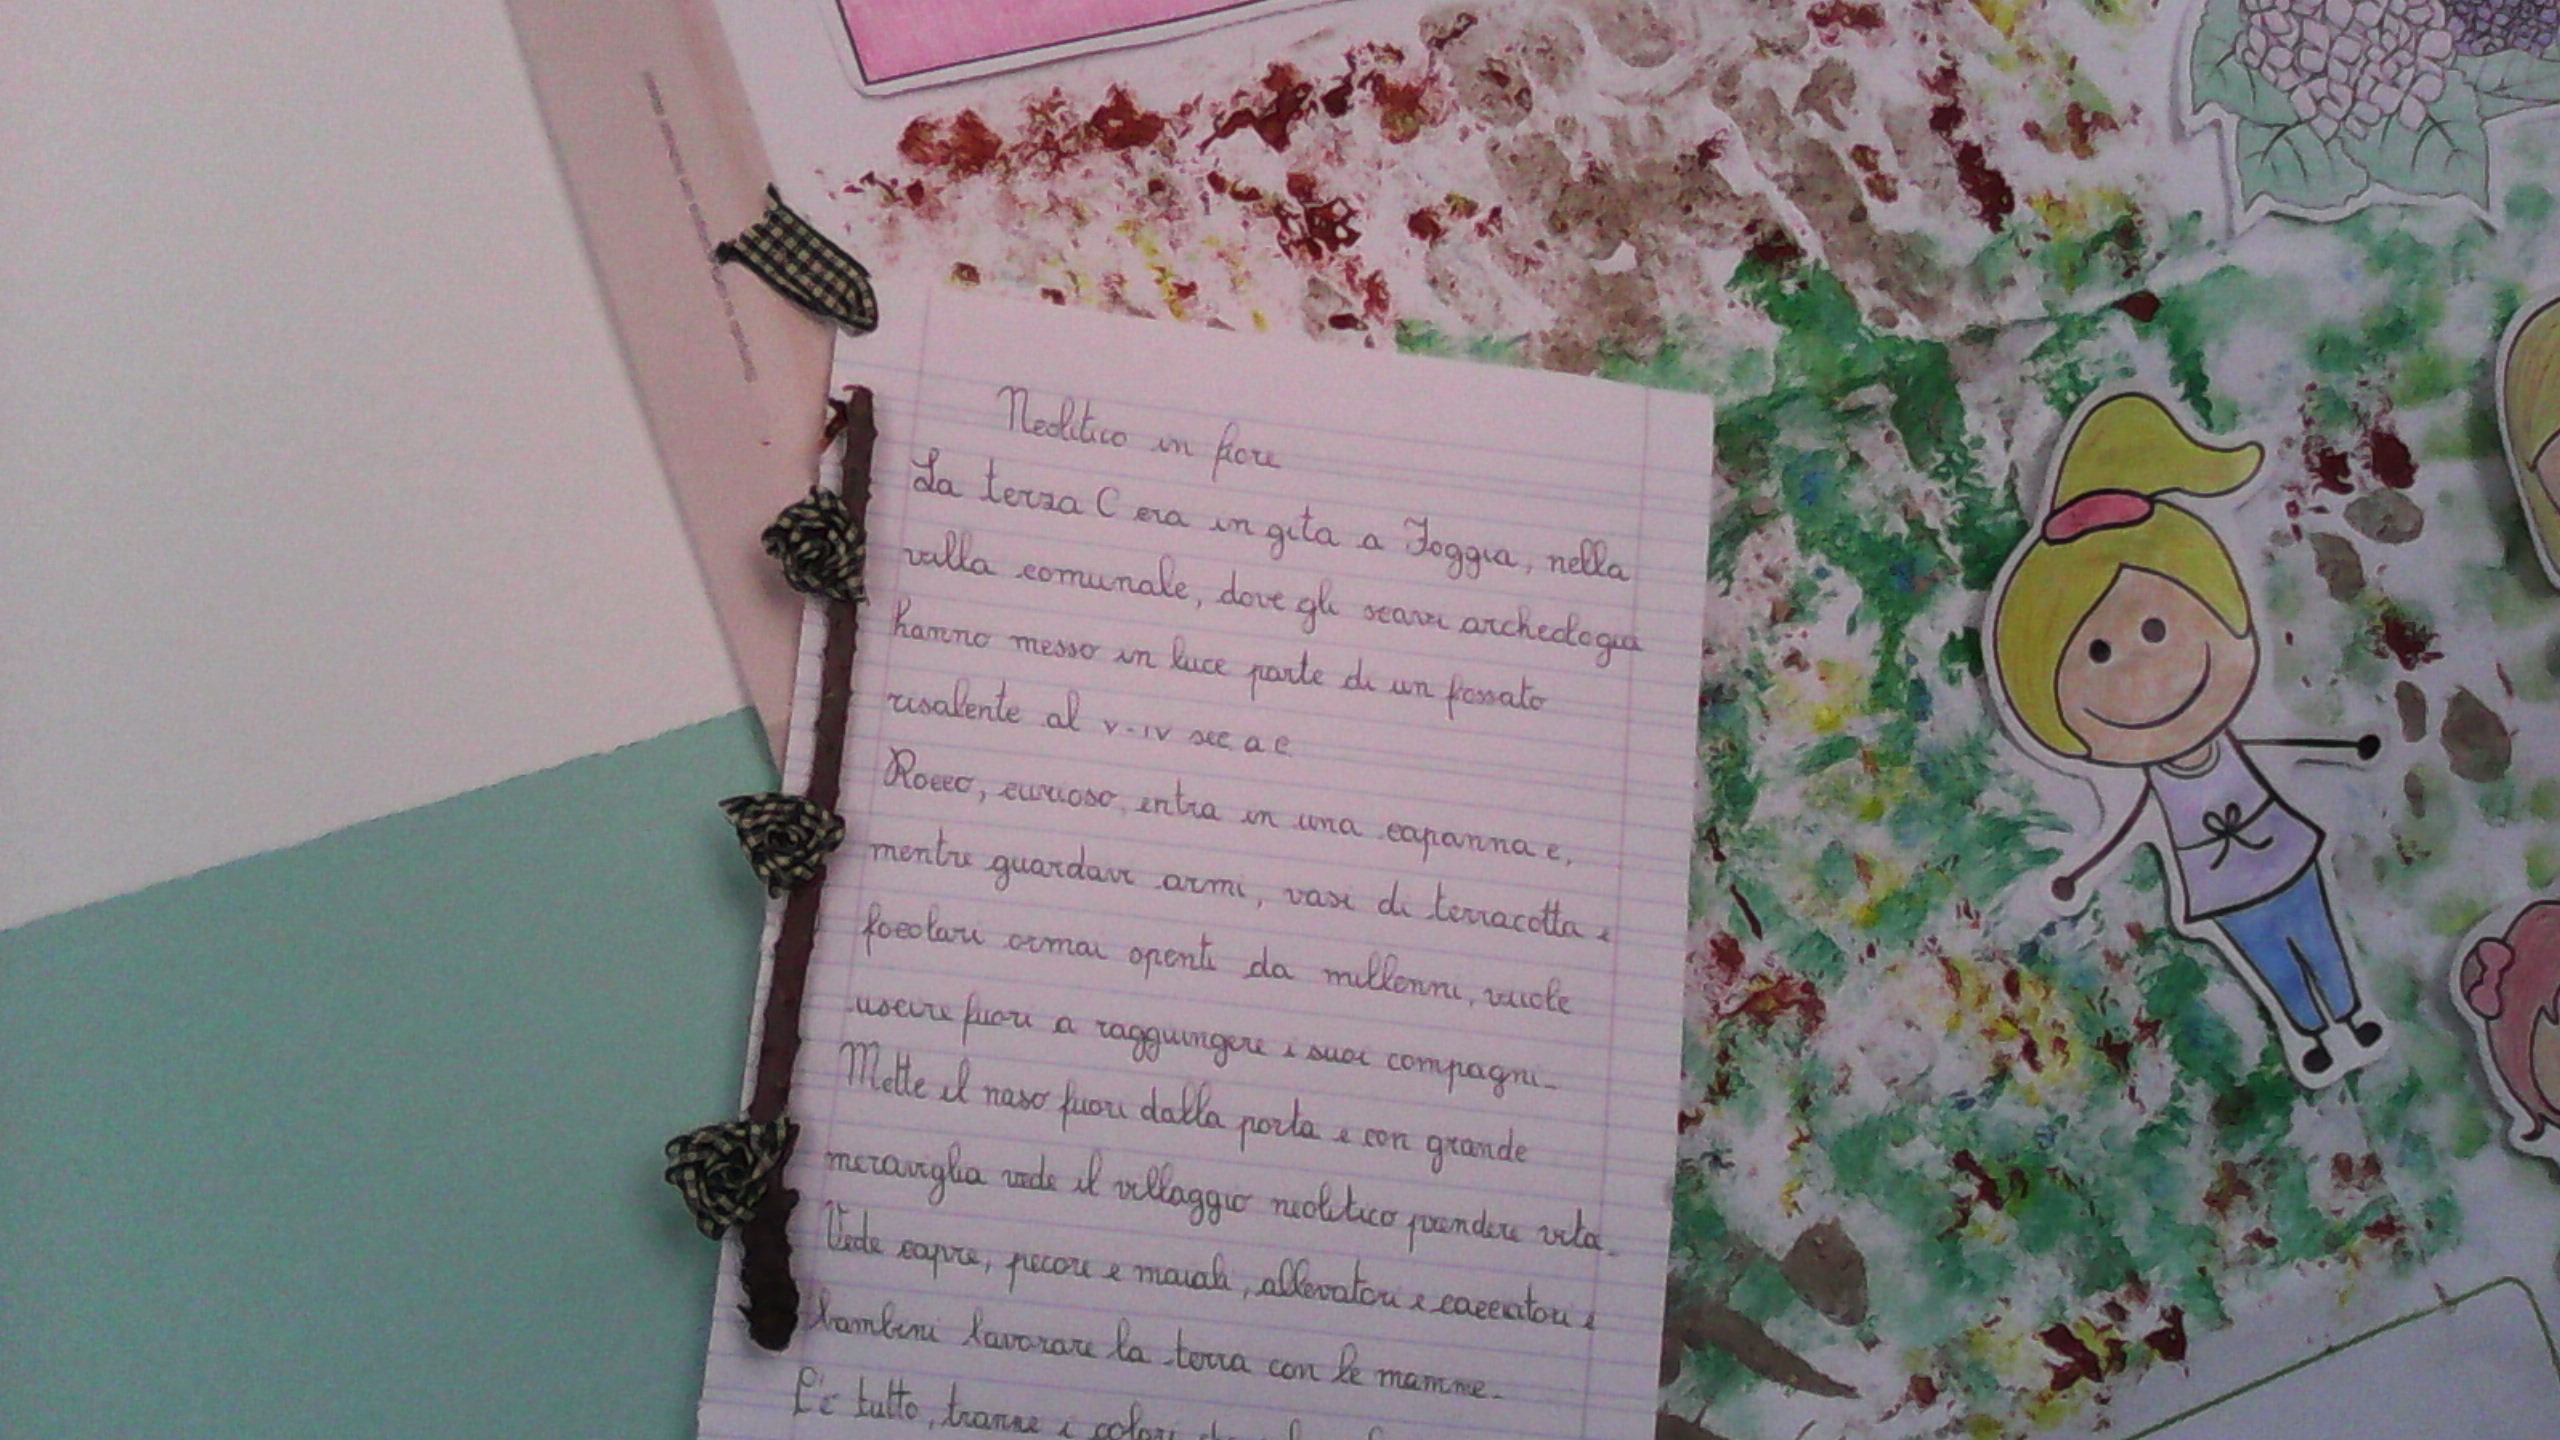 Neolitico in fiore
La terza C era in gita a Foggia, nella
villa comunale, dove gli scavi archeologici
hanno messo in luce parte di un fossato
risalente al V-IV sec a C
Rocco, curioso, entra in una capanna e,
mentre guardava armi, vasi di terracotta e
focolari ormai spenti da millenni, vuole
uscire fuori a raggiungere i suoi compagni.
Mette il naso fuori dalla porta e con grande
meraviglia vede il villaggio neolitico prendere vita.
Vede capre, pecore e maiali, allevatori e cacciatori e
bambini lavorare la terra con le mamme.
C'è tutto, tranne i colori